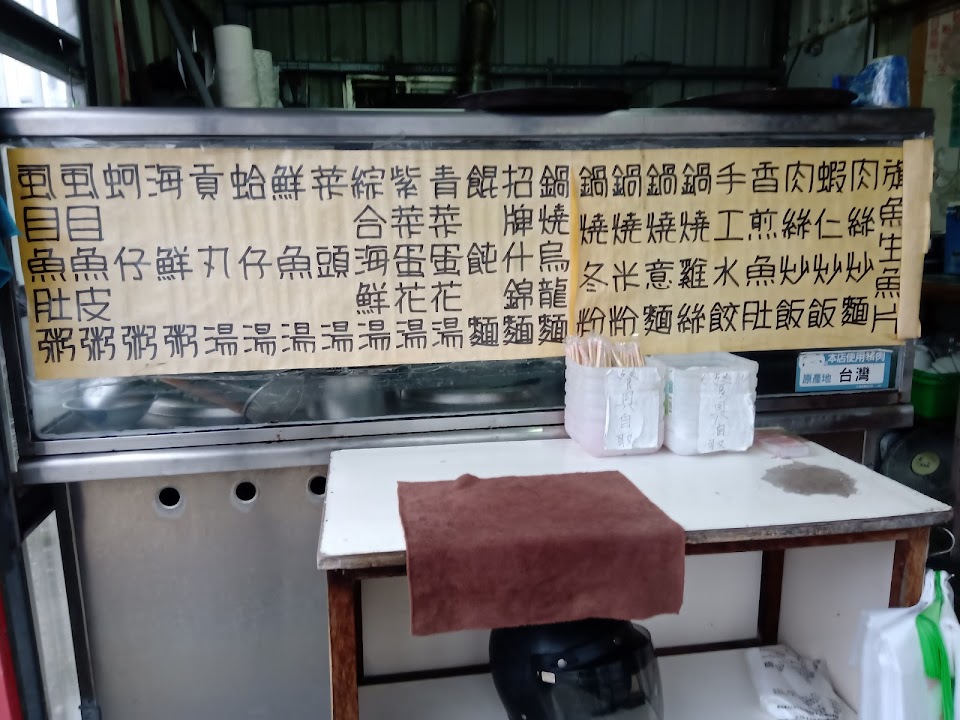 旗魚生魚片
肉絲炒麵
蝦仁炒飯
肉絲炒飯
香煎魚肚
手工水餃
鍋燒雞絲
鍋燒意麵
鍋燒米粉
鍋燒冬粉
鍋燒烏龍麵
招牌什錦麵
餛飩麵
青菜蛋花湯
紫菜蛋花湯
綜合海鮮湯
菜頭湯
鮮魚湯
蛤仔湯
貢丸湯
海鮮粥
蚵仔粥
虱目魚皮粥
虱目魚肚粥
本店使用豬肉
原產地 台灣
餐具自取
餐具自取